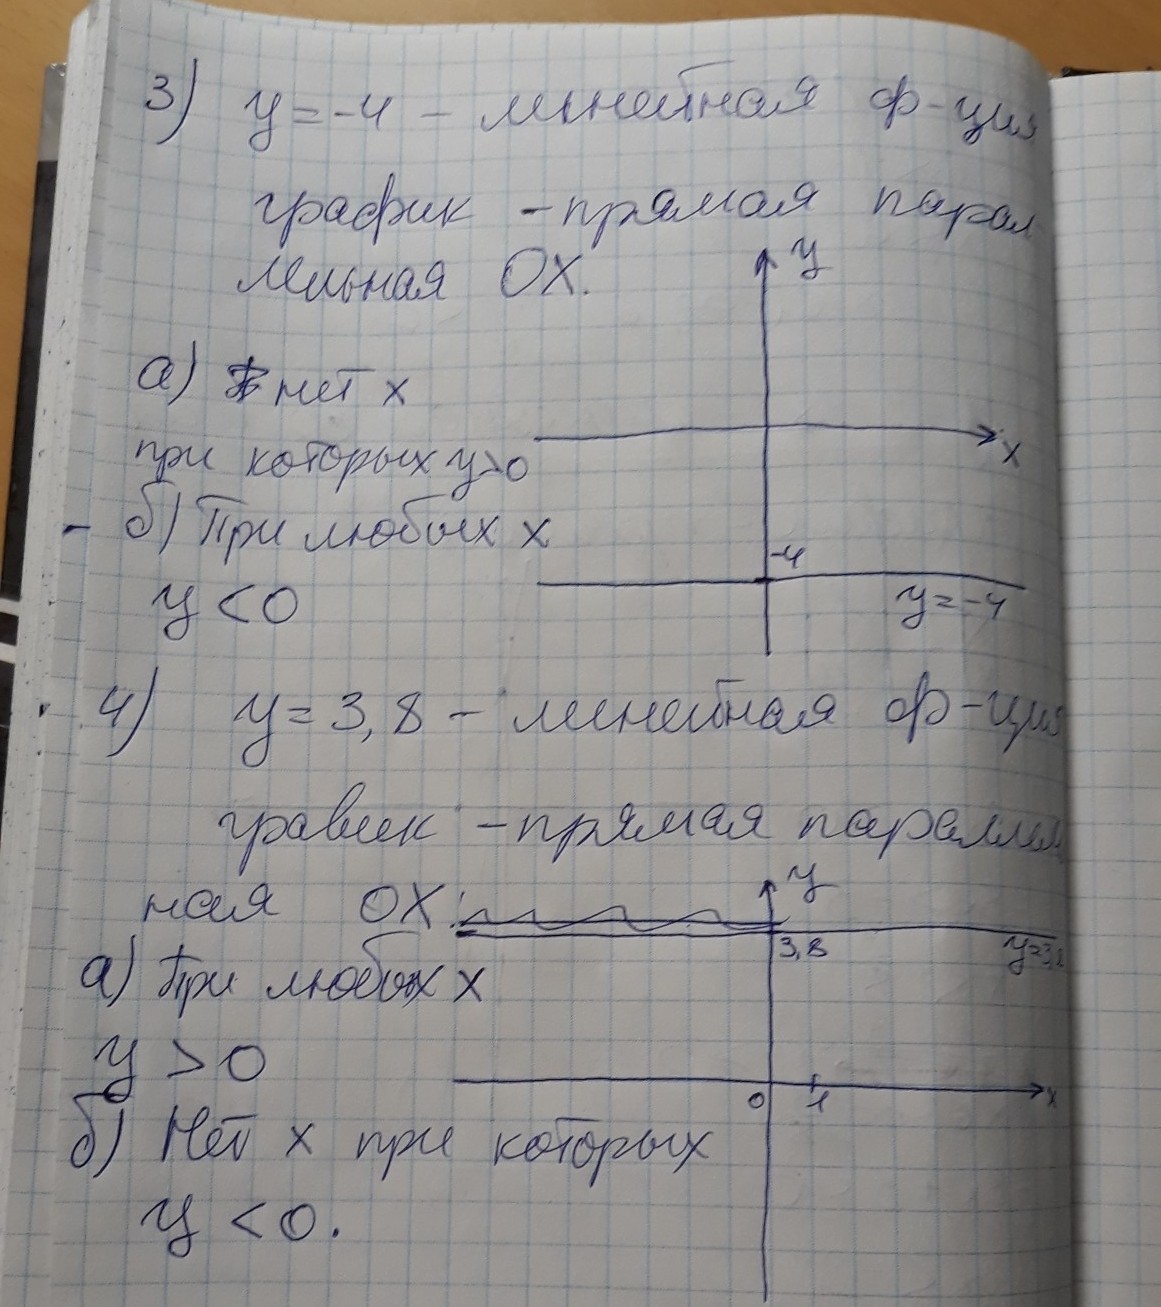 3) y = -4 - линейная ф-ция
график - прямая парал
лельная OX.
y
а) нет x
x
при которых y>0
б) При любых x
-4
y < 0
y = -4
4) y = 3,8 - линейная ф-ция
график - прямая параллель
ная OX.
y
3,8
y=3,8
а) При любых x
y > 0
0 1 x
б) Нет x при которых
y < 0.